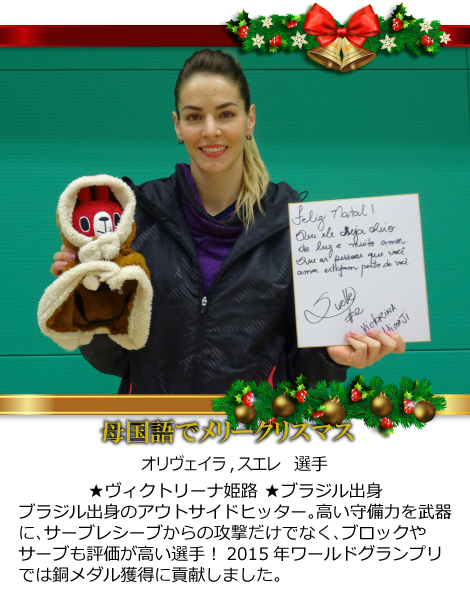 Feliz Natal!
Que ele seja cheio
de luz e muito amor.
Que as pessoas que você
ama estejam perto de você.
Suelle
#2
Victorina
Himeji
母国語でメリークリスマス
オリヴェイラ,スエレ 選手
★ヴィクトリーナ姫路 ★ブラジル出身
ブラジル出身のアウトサイドヒッター。高い守備力を武器
に、サーブレシーブからの攻撃だけでなく、ブロックや
サーブも評価が高い選手！ 2015年ワールドグランプリ
では銅メダル獲得に貢献しました。